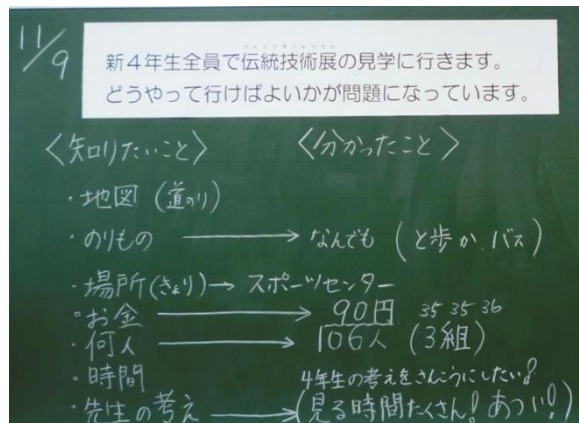 11/9
新4年生全員で伝統技術展の見学に行きます。
どうやって行けばよいかが問題になっています。
〈知りたいこと〉 〈分かったこと〉
・地図(道のり)
・のりもの → なんでも(と歩か、バス)
・場所(きょり)→ スポーツセンター
・お金 → 90円 35 35 36
・何人 → 106人(3組)
・時間 4年生の考えをさんこうにしたい!
・先生の考え → (見る時間たくさん! あつい!)